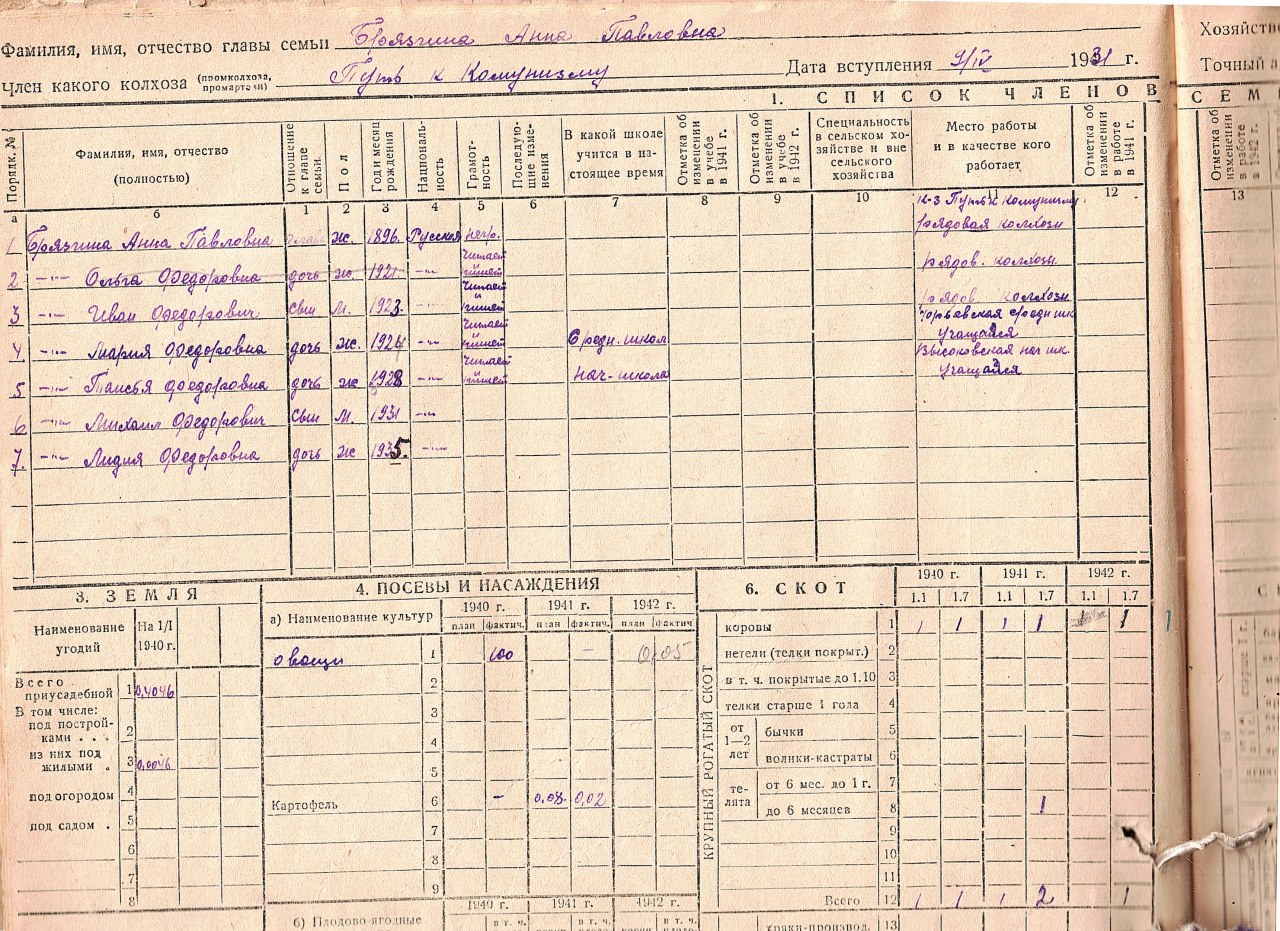 Фамилия, имя, отчество главы семьи Брязгина Анна Павловна
Член какого колхоза (промколхоза, промартели) Путь к Комунизму Дата вступления 9/IV 1931 г.
Хозяйство
Точный а
1. СПИСОК ЧЛЕНОВ СЕМЬ
Порядк. №
Фамилия, имя, отчество (полностью)
Отношение к главе семьи
Пол
Год и месяц рождения
Националь-ность
Грамот-ность
Последую-щие изме-нения
В какой школе учится в на-стоящее время
Отметка об изменении в учебе в 1941 г.
Отметка об изменении в учебе в 1942 г.
Специальность в сельском хо-зяйстве и вне сельского хозяйства
Место работы и в качестве кого работает
Отметка об изменении в работе в 1941 г.
Отметка об изменении в работе в 1942 г.
а б 1 2 3 4 5 6 7 8 9 10 11 12 13
1 Брязгина Анна Павловна глава ж. 1896 Русская негр. к-з Путь к Комунизму рядовая колхозн
2 —"— Ольга Федоровна дочь ж. 1921 —"— читает и пишет рядов. колхозн
3 —"— Иван Федорович сын м. 1923 —"— читает и пишет рядов. колхозн
4 —"— Мария Федоровна дочь ж. 1926 —"— читает и пишет Средн. школ средн шк учащайся
5 —"— Таисья Федоровна дочь ж 1928 —"— читает и пишет нач-школа Высоковская нач шк учащайся
6 —"— Михаил Федорович сын м. 1931 —"—
7. —"— Лидия Федоровна дочь ж 1935. —"—
3. ЗЕМЛЯ
Наименование угодий На 1/I 1940 г.
Всего приусадебной 1 0,4046
В том числе:
под построй-ками . . . 2
из них под жилыми . 3 0,0046
под огородом 4
под садом . 5
6
7
8
4. ПОСЕВЫ И НАСАЖДЕНИЯ
а) Наименование культур 1940 г. 1941 г. 1942 г.
план фактич. план фактич. план фактич.
овощи 1 100 — 0,05
2
3
4
5
Картофель 6 — 0,08 0,02
7
8
9
б) Плодово-ягодные 1940 г. 1941 г. 1942 г.
в т. ч. в т. ч. в т. ч.
6. СКОТ
1940 г. 1941 г. 1942 г.
1.1 1.7 1.1 1.7 1.1 1.7
КРУПНЫЙ РОГАТЫЙ СКОТ
коровы 1 1 1 1 1 1 1
нетели (телки покрыт.) 2
в т. ч. покрытые до 1.10 3
телки старше 1 года 4
от 1—2 лет
бычки 5
волики-кастраты 6
те-лята
от 6 мес. до 1 г. 7
до 6 месяцев 8 1
9
10
11
Всего 12 1 1 1 2 1
хряки-производ. 13